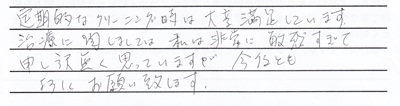 定期的なクリーニング時は大変満足しています
治療に関しましては私は非常に敏感すぎて
申し訳無く思っていますが 今後とも
よろしくお願い致します。